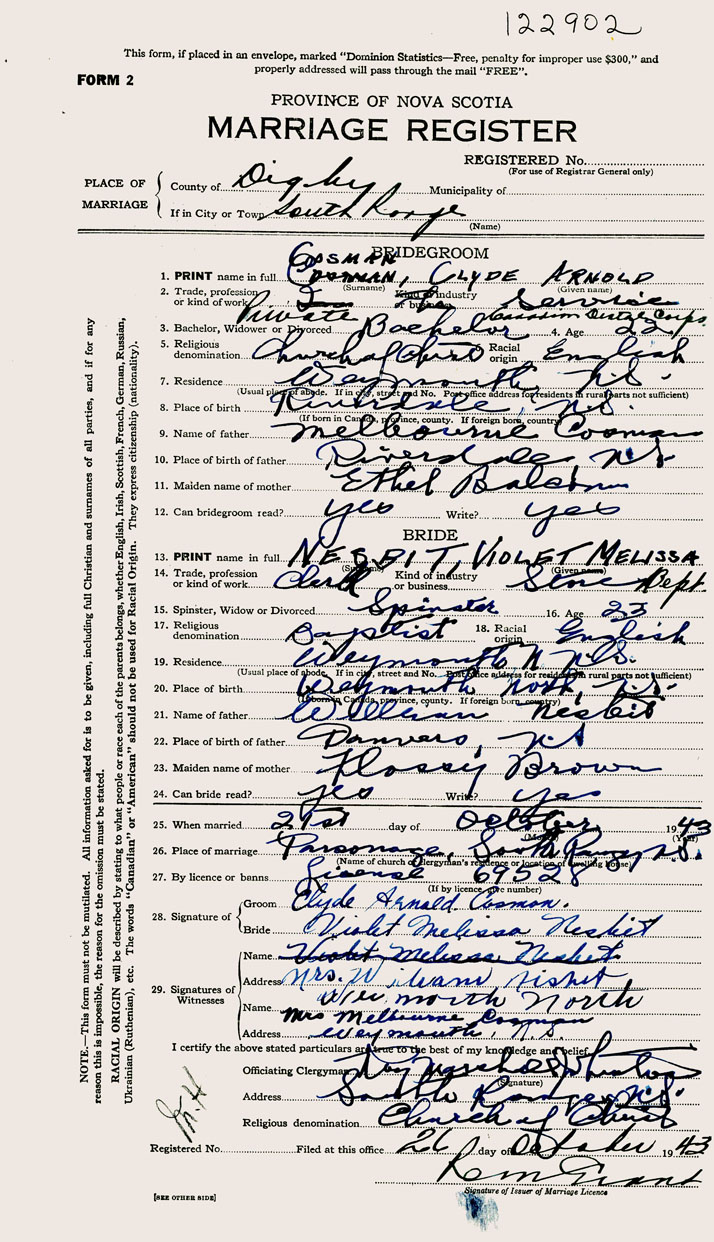 122902
This form, if placed in an envelope, marked "Dominion Statistics—Free, penalty for improper use $300," and
properly addressed will pass through the mail "FREE".
FORM 2
PROVINCE OF NOVA SCOTIA
MARRIAGE REGISTER
REGISTERED No.
(For use of Registrar General only)
PLACE OF MARRIAGE
County of Digby Municipality of
If in City or Town South Range
(Name)
BRIDEGROOM
COSMAN
1. PRINT name in full COSMAN, CLYDE ARNOLD
(Surname) (Given name)
2. Trade, profession or kind of work Private Kind of industry or business Service
Canadian Dental Corps
3. Bachelor, Widower or Divorced Bachelor 4. Age 22
5. Religious denomination Church of Christ 6. Racial origin English
7. Residence Weymouth, N.S.
(Usual place of abode. If in city, street and No. Post office address for residents in rural parts not sufficient)
8. Place of birth Riverdale, N.S.
(If born in Canada, province, county. If foreign born, country)
9. Name of father Melbourne Cosman
10. Place of birth of father Riverdale N.S.
11. Maiden name of mother Ethel
12. Can bridegroom read? yes Write? yes
BRIDE
13. PRINT name in full NESBIT, VIOLET MELISSA
(Surname) (Given name)
14. Trade, profession or kind of work Clerk Kind of industry or business Store Dept.
15. Spinster, Widow or Divorced Spinster 16. Age 23
17. Religious denomination Baptist 18. Racial origin English
19. Residence Weymouth N N.S.
(Usual place of abode. If in city, street and No. Post office address for residents in rural parts not sufficient)
20. Place of birth Weymouth North, N.S.
(If born in Canada, province, county. If foreign born, country)
21. Name of father William Nesbit
22. Place of birth of father Danvers, N.S
23. Maiden name of mother Flossy Brown
24. Can bride read? yes Write? yes
25. When married 21st day of October 1943
(Month) (Year)
26. Place of marriage Parsonage, South Range, N.S.
(Name of church or clergyman's residence or location of dwelling house)
27. By licence or banns License 69528
(If by licence, give number)
28. Signature of
Groom Clyde Arnold Cosman.
Bride Violet Melissa Nesbit
29. Signatures of Witnesses
Name Violet Melissa Nesbit
Address Mrs. William Nisbet
Weymouth North
Name Mrs Melbourne Cosman
Address Weymouth, N.S.
I certify the above stated particulars are true to the best of my knowledge and belief.
Officiating Clergyman
(Signature)
Address South Range, N.S.
Religious denomination Church of Christ
Registered No. Filed at this office 26 day of October 1943
Signature of Issuer of Marriage Licence
[SEE OTHER SIDE]
NOTE.—This form must not be mutilated. All information asked for is to be given, including full Christian and surnames of all parties, and if for any
reason this is impossible, the reason for the omission must be stated.
RACIAL ORIGIN will be described by stating to what people or race each of the parents belongs, whether English, Irish, Scottish, French, German, Russian,
Ukrainian (Ruthenian), etc. The words "Canadian" or "American" should not be used for Racial Origin. They express citizenship (nationality).